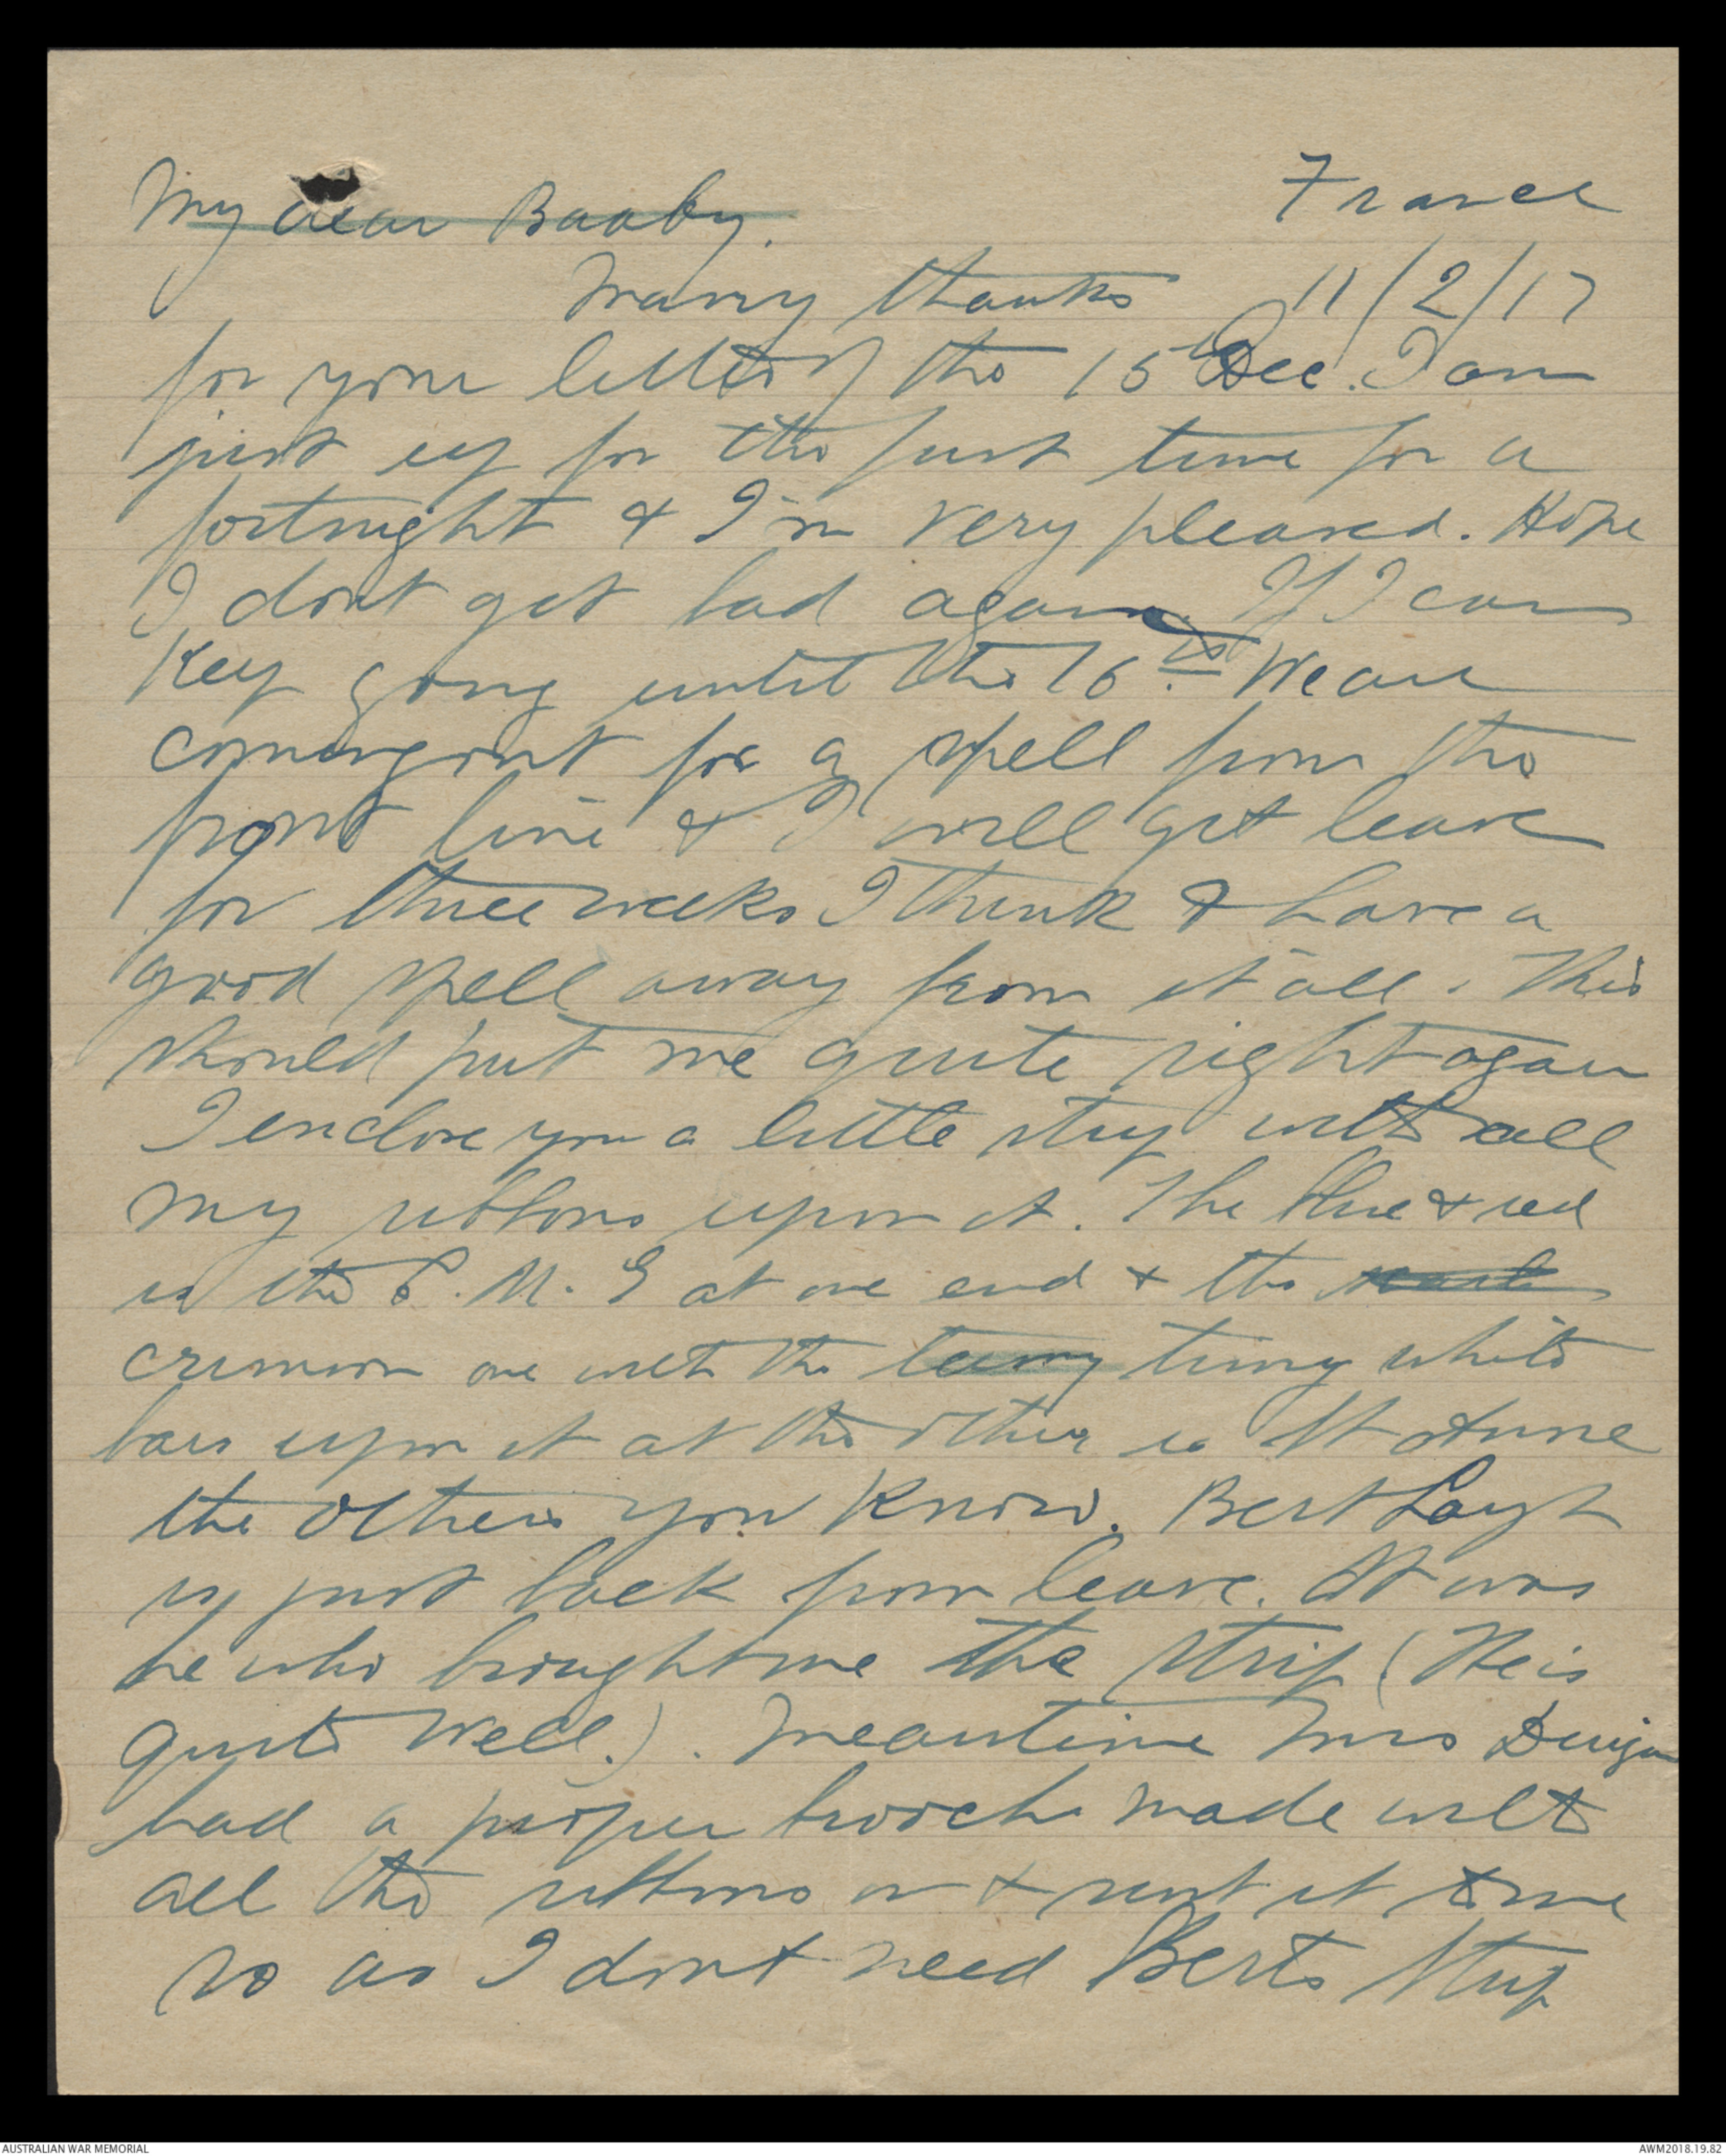 My dear Baaby.
France
Many thanks 11/2/17
for your letter of the 15th Dec. I am
just up for the first time for a
fortnight & I'm very pleased. Hope
I dont get bad again. If I can
keep going until the 16th We are
coming out for a spell from the
front line & I will get leave
for three weeks I think & have a
good spell away from it all. This
should put me quite right again
I enclose you a little strip with all
my ribbons upon it. The blue & red
is the C.M.G at one end & the
crimson one with the teeny tiny white
bars upon it at the other is St Anne
the others you know. Bert Layh
is just back from leave. It was
he who brought me the strip (He is
quite well.). Meantime Mrs
had a proper brooch made with
all the ribbons on & sent it to me
so as I dont need Berts strip
AUSTRALIAN WAR MEMORIAL
AWM2018.19.82